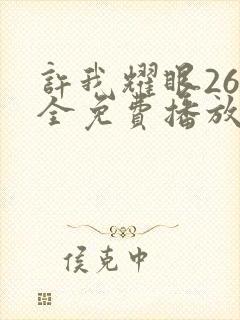 許我耀眼26
全免費播放
侯克中